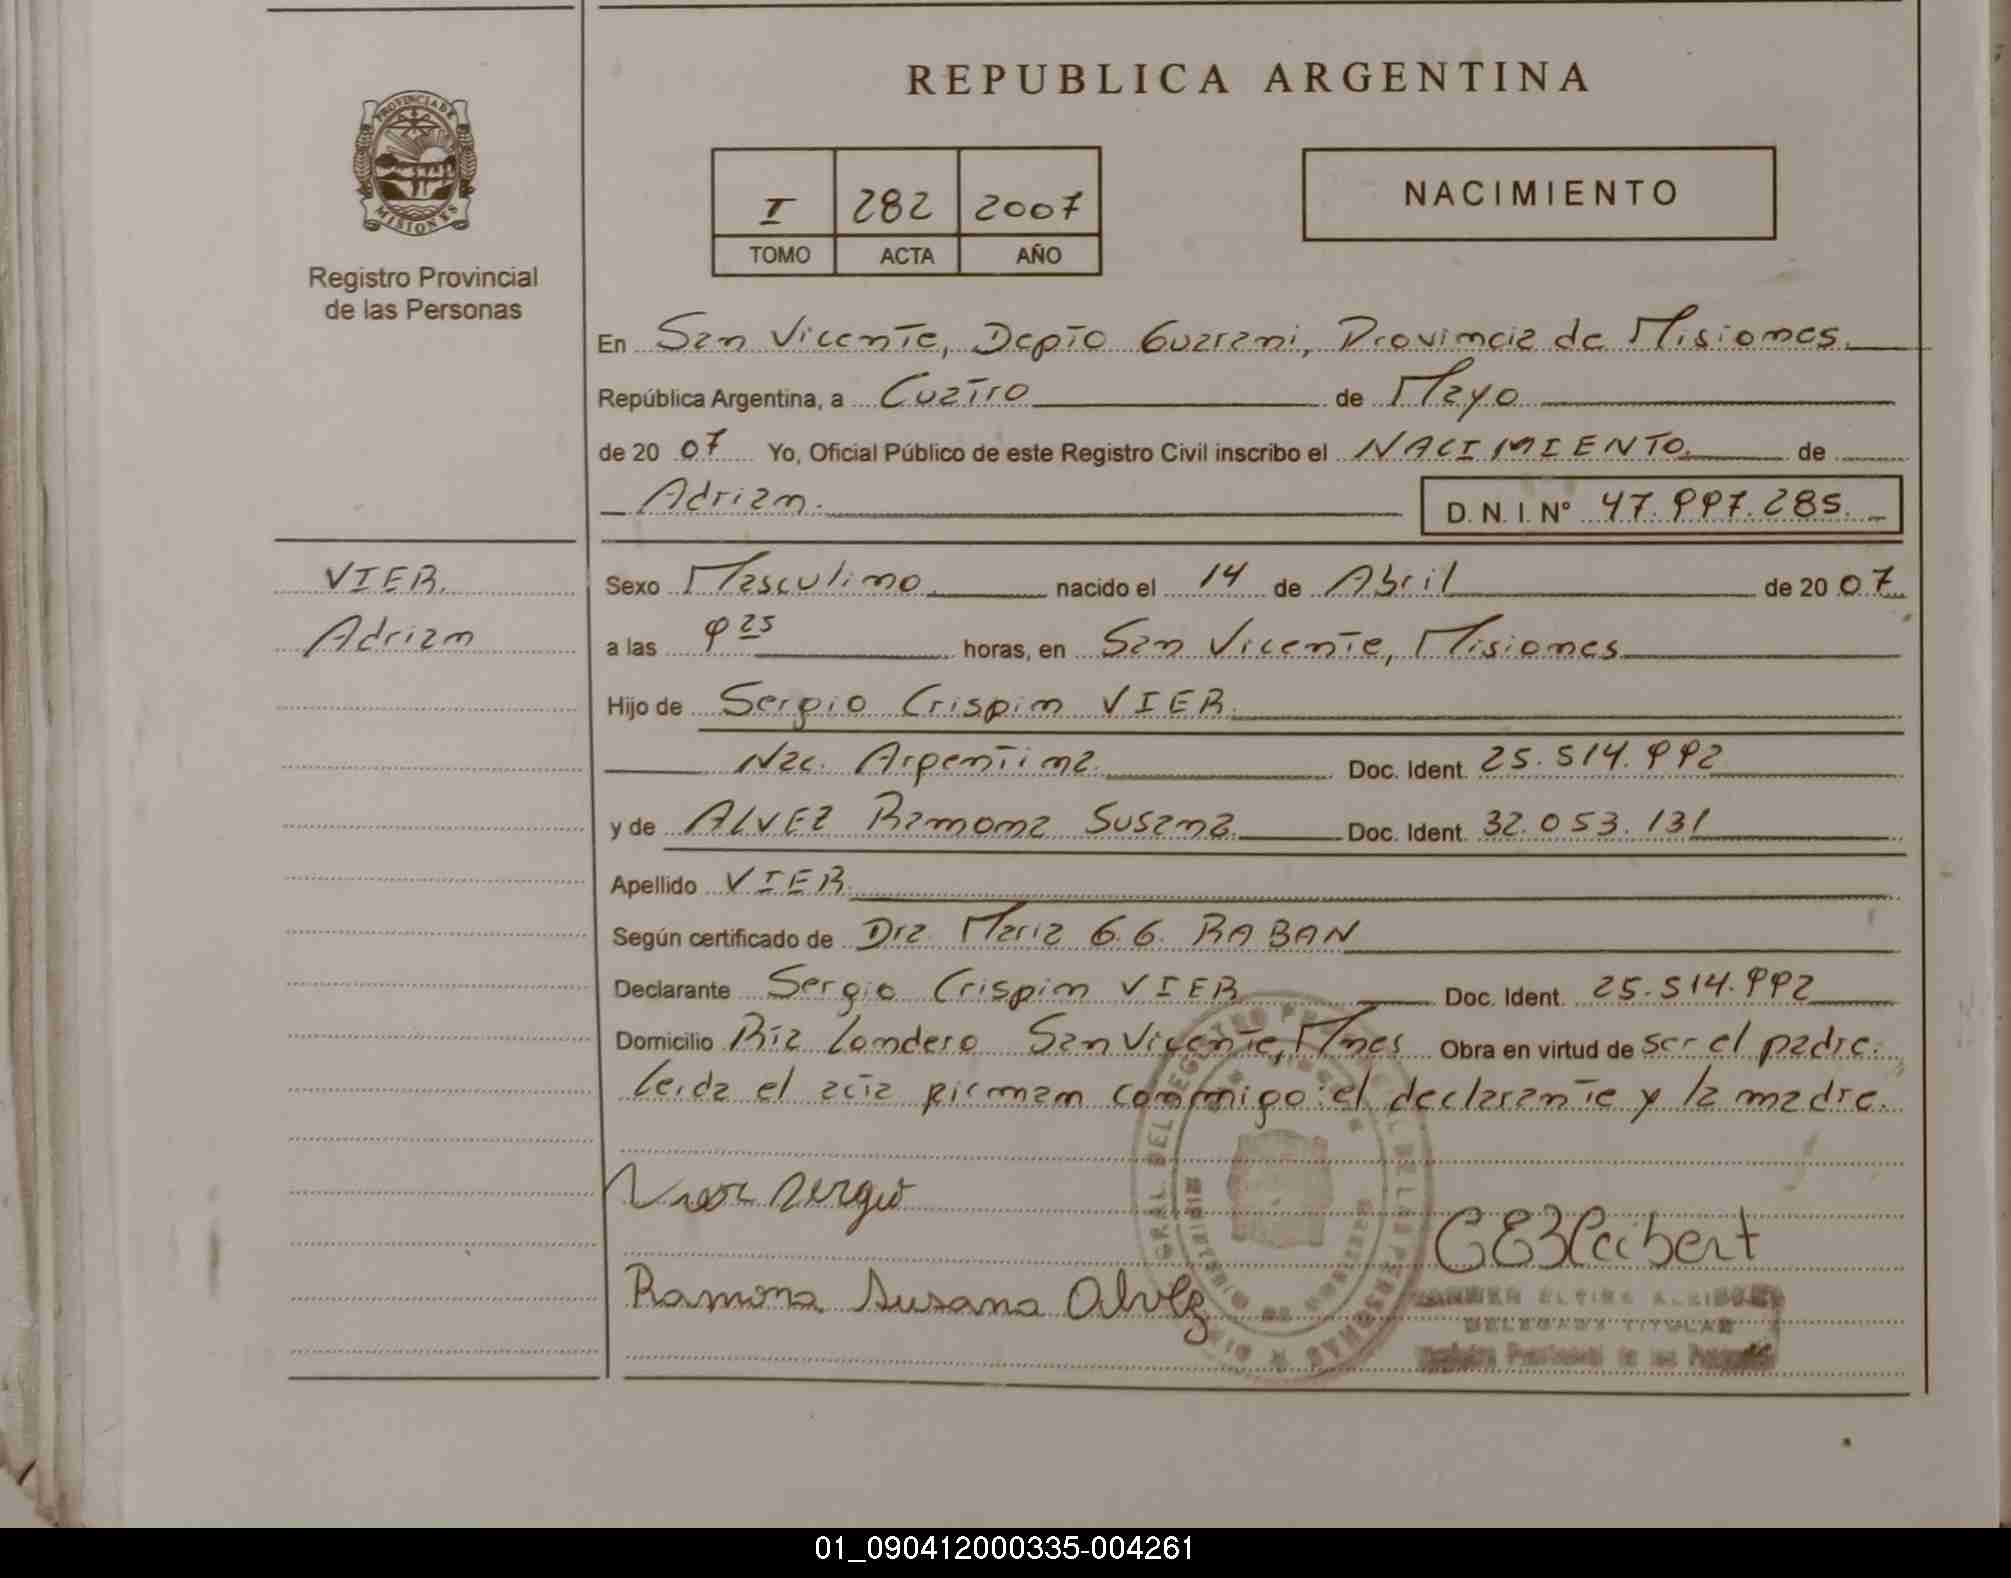 REPUBLICA ARGENTINA
PROVINCIA DE MISIONES
Registro Provincial
de las Personas
I 282 2007
TOMO ACTA AÑO
NACIMIENTO
En San Vicente, Depto Guarani, Provincia de Misiones.
República Argentina, a Cuatro de Mayo
de 20 07 Yo, Oficial Público de este Registro Civil inscribo el NACIMIENTO. de
Adrian. D. N. I. N° 47.997.285.
VIER.
Adrian
Sexo Masculino nacido el 14 de Abril de 20 07
a las 9 25 horas, en San Vicente, Misiones
Hijo de Sergio Crispin VIER.
Nac. Argentina. Doc. Ident. 25.514.992
y de ALVEZ Ramona Susana. Doc. Ident. 32.053.131
Apellido VIER.
Según certificado de Dra. Maria G.G. RABAN
Declarante Sergio Crispin VIER Doc. Ident. 25.514.992
Domicilio Bia Londero San Vicente, Mnes Obra en virtud de ser el padre.
Leida el acta firman conmigo el declarante y la madre.
Vier Sergio
Ramona Susana Alvez
DELEGADA TITULAR
Registro Provincial de las Personas
01_090412000335-004261